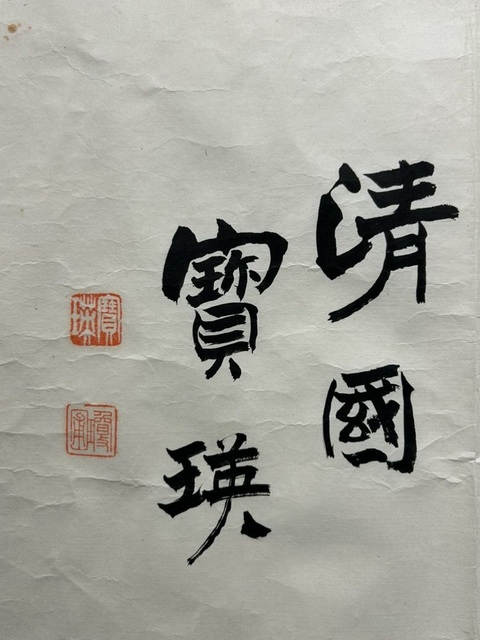 清國
寳瑛
寶瑛